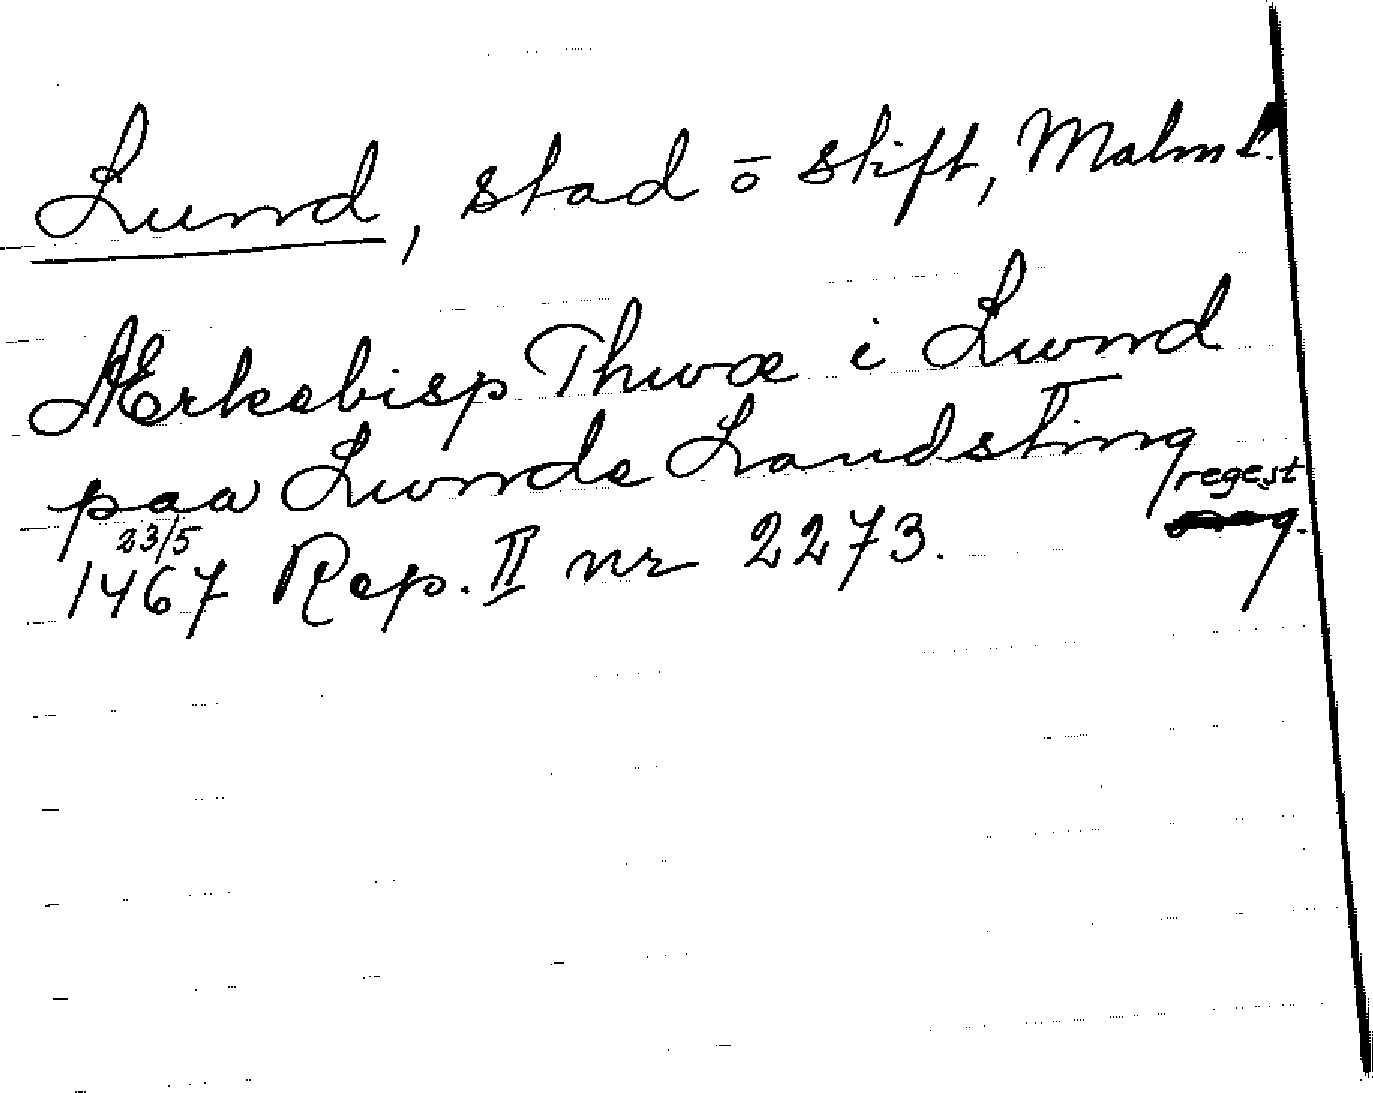 Lund, stad ō stift, Malm l.
Ærkebisp Thuvæ i Lund
paa Lunde Landsting
regest
23/5
1467 Rep. II nr 2273.